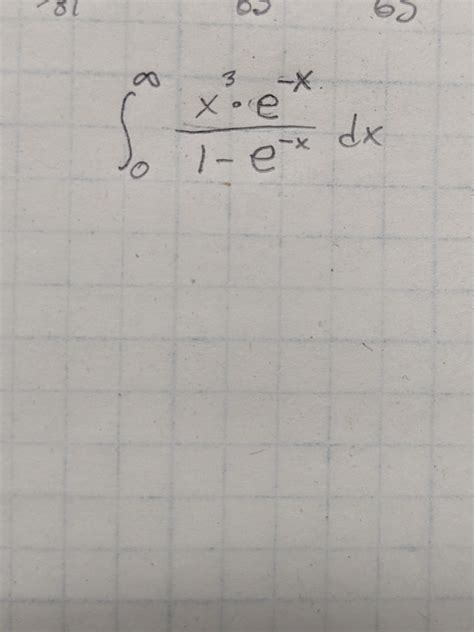 ∫₀^∞ (x³ · e^(-x)) / (1 - e^(-x)) dx